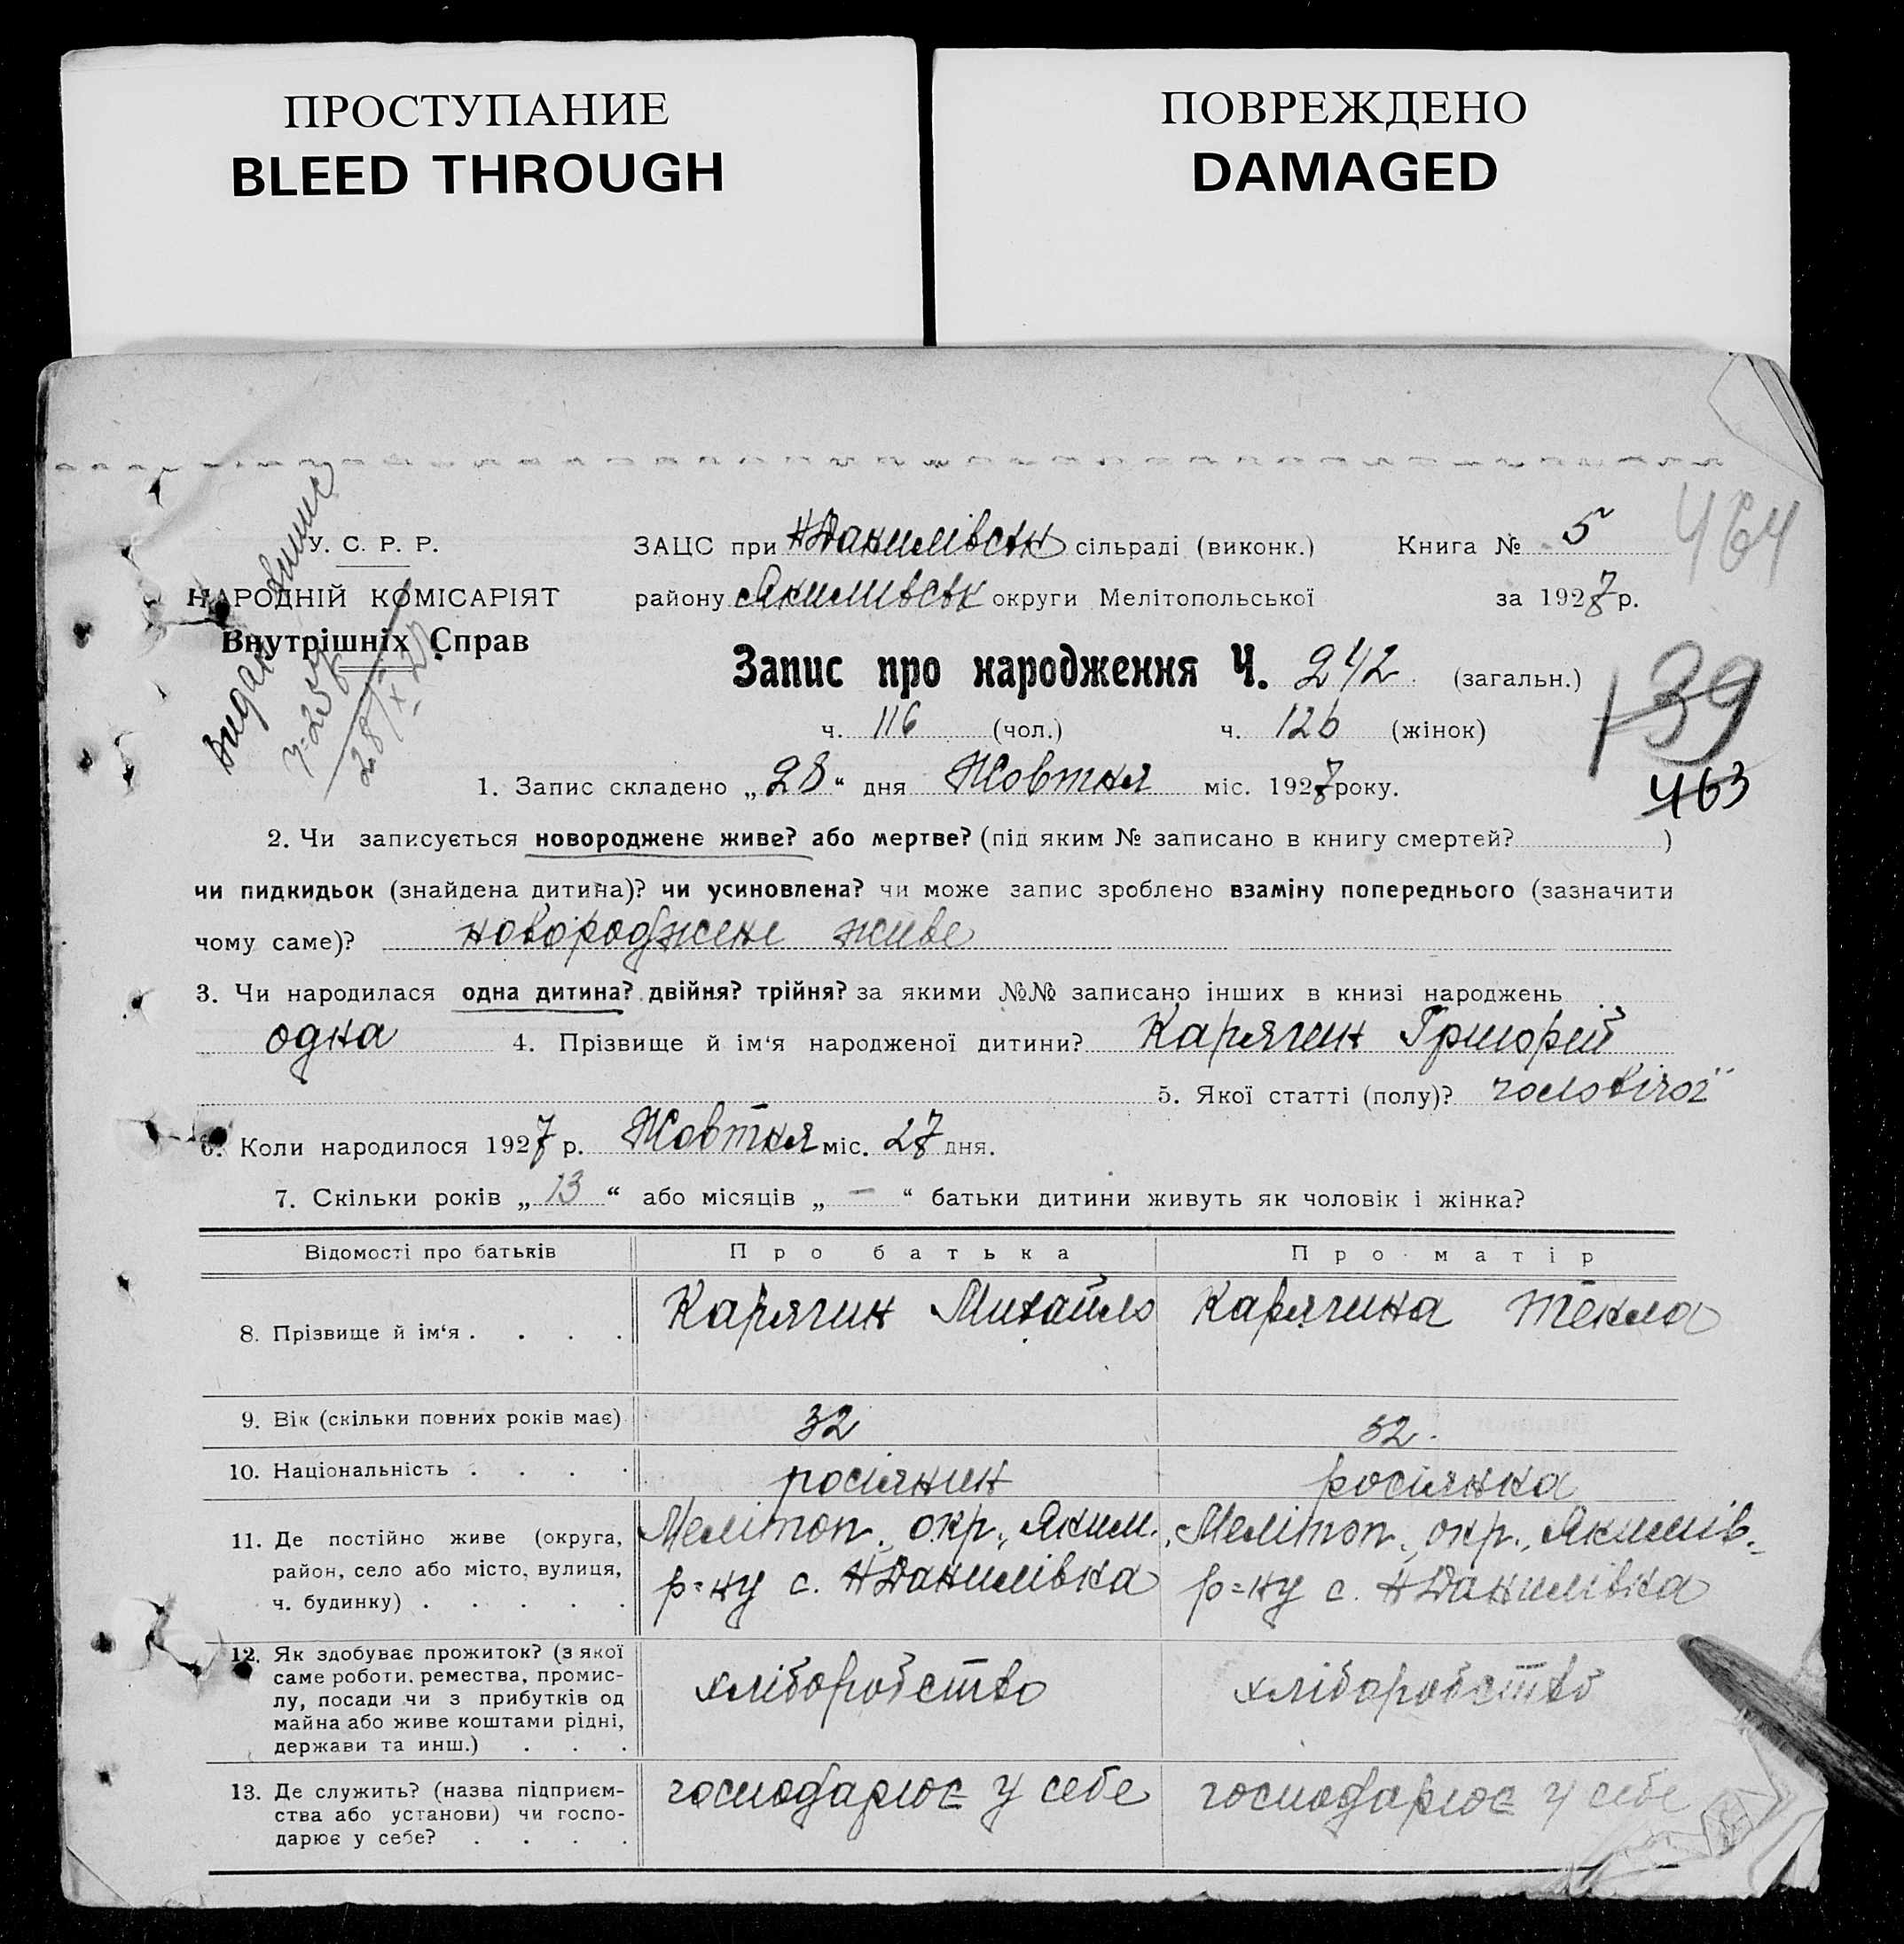 ПРОСТУПАНИЕ
BLEED THROUGH
ПОВРЕЖДЕНО
DAMAGED
У. С. Р. Р.
НАРОДНІЙ КОМІСАРІЯТ
Внутрішніх Справ
ЗАЦС при Н Данилівськ сільраді (виконк.) Книга № 5
464
району Якимівськ округи Мелітопольської за 1927 р.
Запис про народження Ч. 242 (загальн.)
139
ч. 116 (чол.) ч. 126 (жінок)
463
1. Запис складено „28“ дня Жовтня міс. 1927 року.
2. Чи записується новороджене живе? або мертве? (під яким № записано в книгу смертей? )
чи пидкидьок (знайдена дитина)? чи усиновлена? чи може запис зроблено взаміну попереднього (зазначити
чому саме)? новороджене живе
3. Чи народилася одна дитина? двійня? трійня? за якими №№ записано інших в книзі народжень
одна 4. Прізвище й ім‘я народженої дитини? Карягин Григорій
5. Якої статті (полу)? чоловічої
6. Коли народилося 1927 р. Жовтня міс. 27 дня.
7. Скільки років „13“ або місяців „—“ батьки дитини живуть як чоловік і жінка?
Відомості про батьків Про батька Про матір
8. Прізвище й ім‘я . . . . Карягин Михайло Карягина Текла
9. Вік (скільки повних років має) 32 32.
10. Національність . . . . росіянин росіянка
11. Де постійно живе (округа,
район, село або місто, вулиця,
ч. будинку) . . . . .
Меліtоп. окр., Яким.
р=ну с. Н Данилівка
Меліtоп., окр., Якимів.
р=ну с. Н Данилівка
12. Як здобуває прожиток? (з якої
саме роботи. ремества, промис-
лу, посади чи з прибутків од
майна або живе коштами рідні,
держави та инш.) . . .
хліборобство
хліборобство
13. Де служить? (назва підприєм-
ства або установи) чи госпо-
дарює у себе? . . . .
господарює у себе
господарює у себе